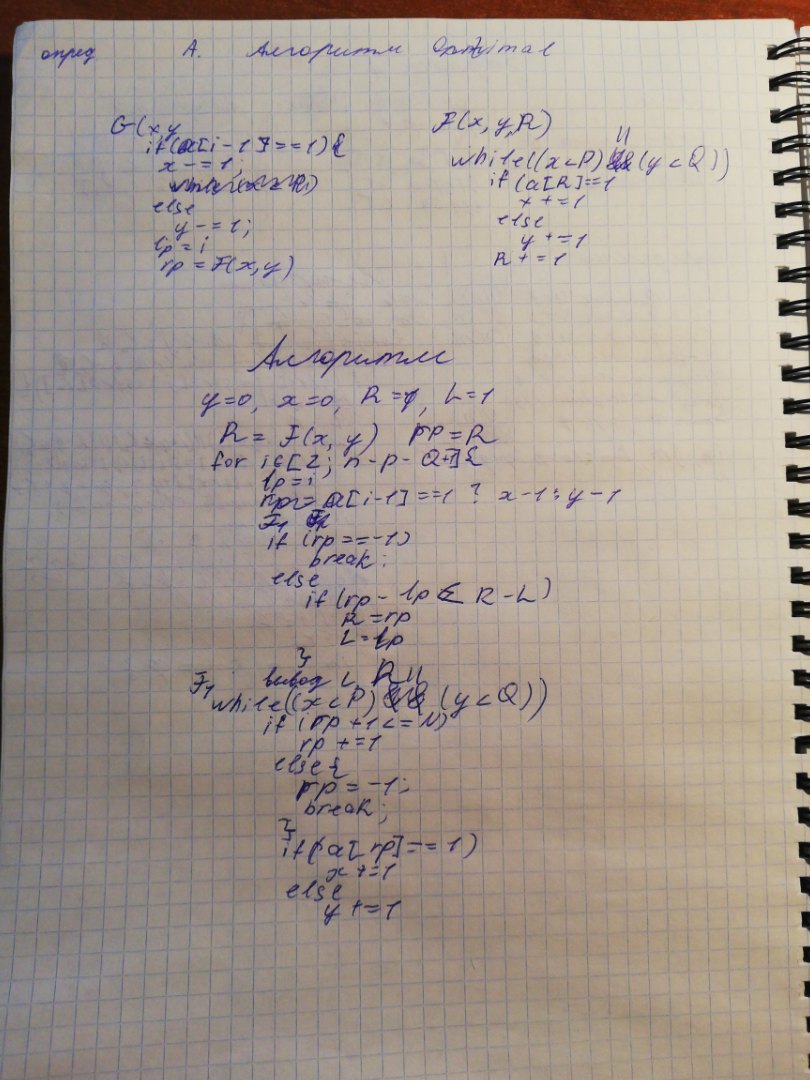 опред А. Алгоритм Optimal
G(x,y
if(a[i-1]==1){
x-=1;
else
y-=1;
lp=i
rp=F(x,y)
F(x,y,R)
||
while((x<P) (y<Q))
if(a[R]==1
x+=1
else
y+=1
R+=1
Алгоритм
y=0, x=0, R=1, L=1
R=F(x,y) rp=R
for i∈[2; n-p-Q+1]{
lp=i
rp=a[i-1]==1 ? x-1:y-1
F1
if (rp==-1)
break;
else
if(rp-lp≤R-L)
R=rp
L=lp
}
вывод L, R
F1
||
while((x<P) (y<Q))
if(rp+1<=N)
rp+=1
else{
rp=-1;
break;
}
if(a[rp]==1)
x+=1
else
y+=1